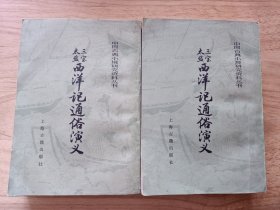 中国古典小说研究资料丛书
三宝太监
西洋记通俗演义
上海古籍出版社
中国古典小说研究资料丛书
三宝太监
西洋记通俗演义
上海古籍出版社